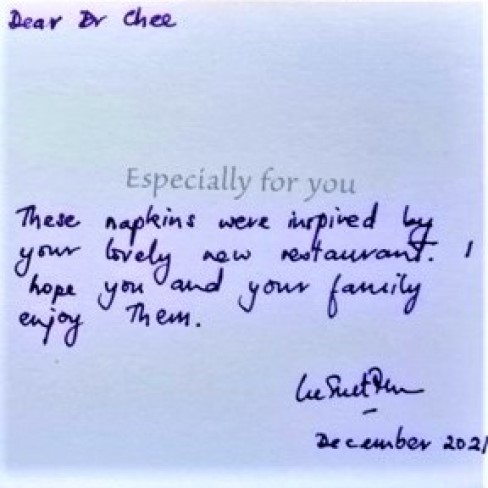 Dear Dr Chee
Especially for you
These napkins were inspired by
your lovely new restaurant. I
hope you and your family
enjoy them.
Lee Suet Fern
December 2021